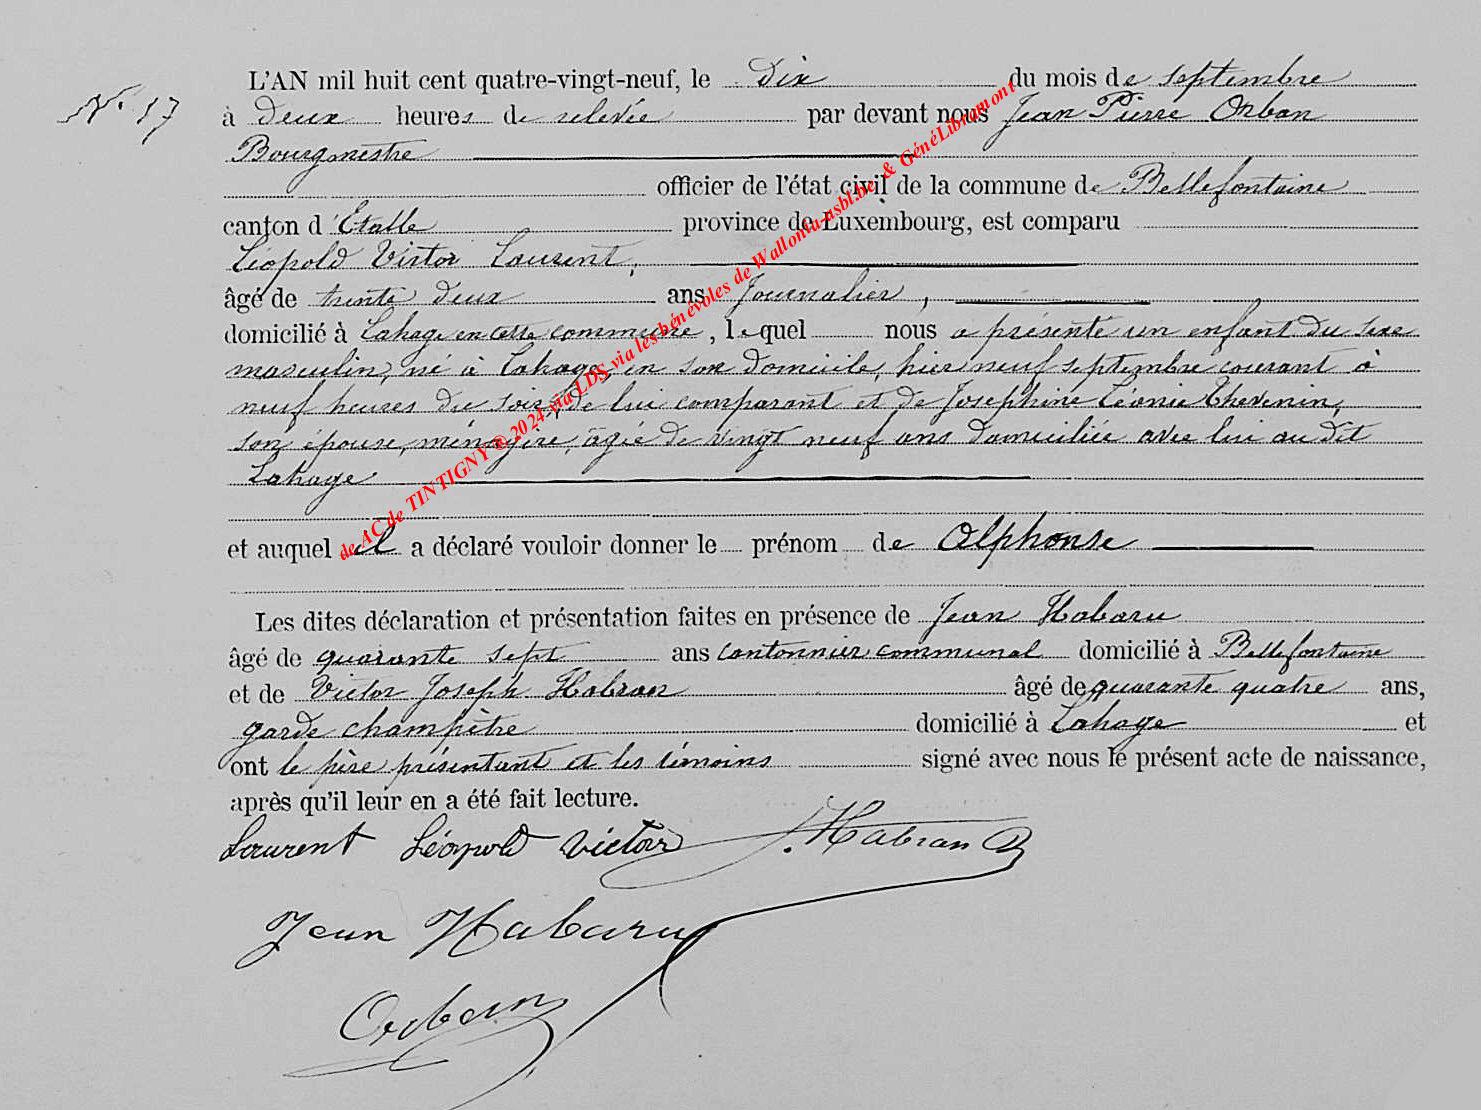 L'AN mil huit cent quatre-vingt-neuf, le dix du mois de septembre
N° 17
à deux heures de relevée par devant nous Jean Pierre Orban
Bourgmestre
officier de l'état civil de la commune de Bellefontaine
canton d'Etalle province de Luxembourg, est comparu
Léopold Victor Laurent,
âgé de trente deux ans Journalier,
domicilié à Lahage en cette commune, lequel nous a présenté un enfant du sexe
masculin, né à Lahage, en son domicile, hier neuf septembre courant à
neuf heures du soir, de lui comparant et de Joséphine Léonie Thevenin,
son épouse, ménagère, âgée de vingt neuf ans domiciliée avec lui au dit
Lahage
et auquel il a déclaré vouloir donner le prénom de Alphonse
Les dites déclaration et présentation faites en présence de Jean Habaru
âgé de quarante sept ans cantonnier communal domicilié à Bellefontaine
et de Victor Joseph Habran âgé de quarante quatre ans,
garde champêtre domicilié à Lahage et
ont le père présentant et les témoins signé avec nous le présent acte de naissance,
après qu'il leur en a été fait lecture.
Laurent Léopold Victor J. Habran
Jean Habaru
Orban
de AC de TINTIGNY © 2024 via LDS via les bénévoles de Wallonia-asbl.be & GénéLibramont